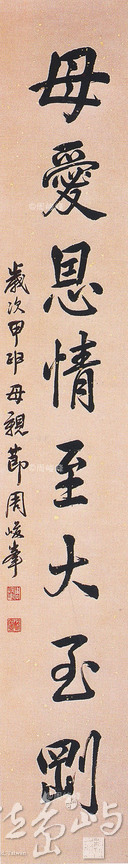 母愛恩情至大至剛
歲次甲申母親節周峻峯